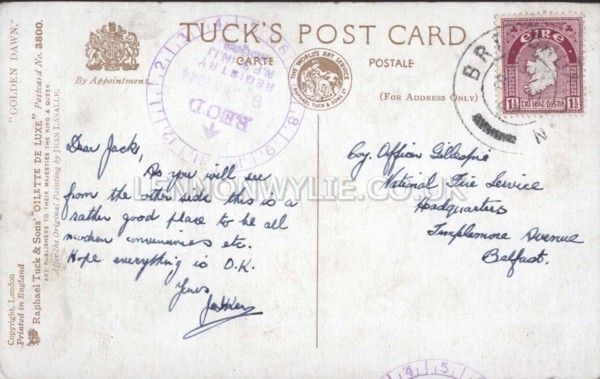 TUCK'S POST CARD
CARTE
POSTALE
By Appointment
(FOR ADDRESS ONLY)
THE WORLD'S ART SERVICE
RAPHAEL TUCK & SONS LTD
"GOLDEN DAWN." Postcard No. 3800.
After the Original Painting by JEAN LASALLE.
Raphael Tuck & Sons' "OILETTE DE LUXE"
ART PUBLISHERS TO THEIR MAJESTIES THE KING & QUEEN
Copyright, London
Printed in England
Dear Jack,
As you will see
from the other side this is a
rather good place to be all
modern conveniences etc.
Hope everything is O.K.
Yours
Coy. Officer Gillespie
National Fire Service
Headquarters
Templemore Avenue
Belfast.
ÉIRE
1½ 1½
BR
REGISTRY
REC'D
1 2 3 4 5 6 7 8 9 10 11 12
4 5
LENNONWYLIE.CO.UK